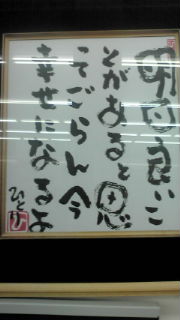 明日良いこ
とがあると思
ってごらん今
幸せになるよ
ひとり